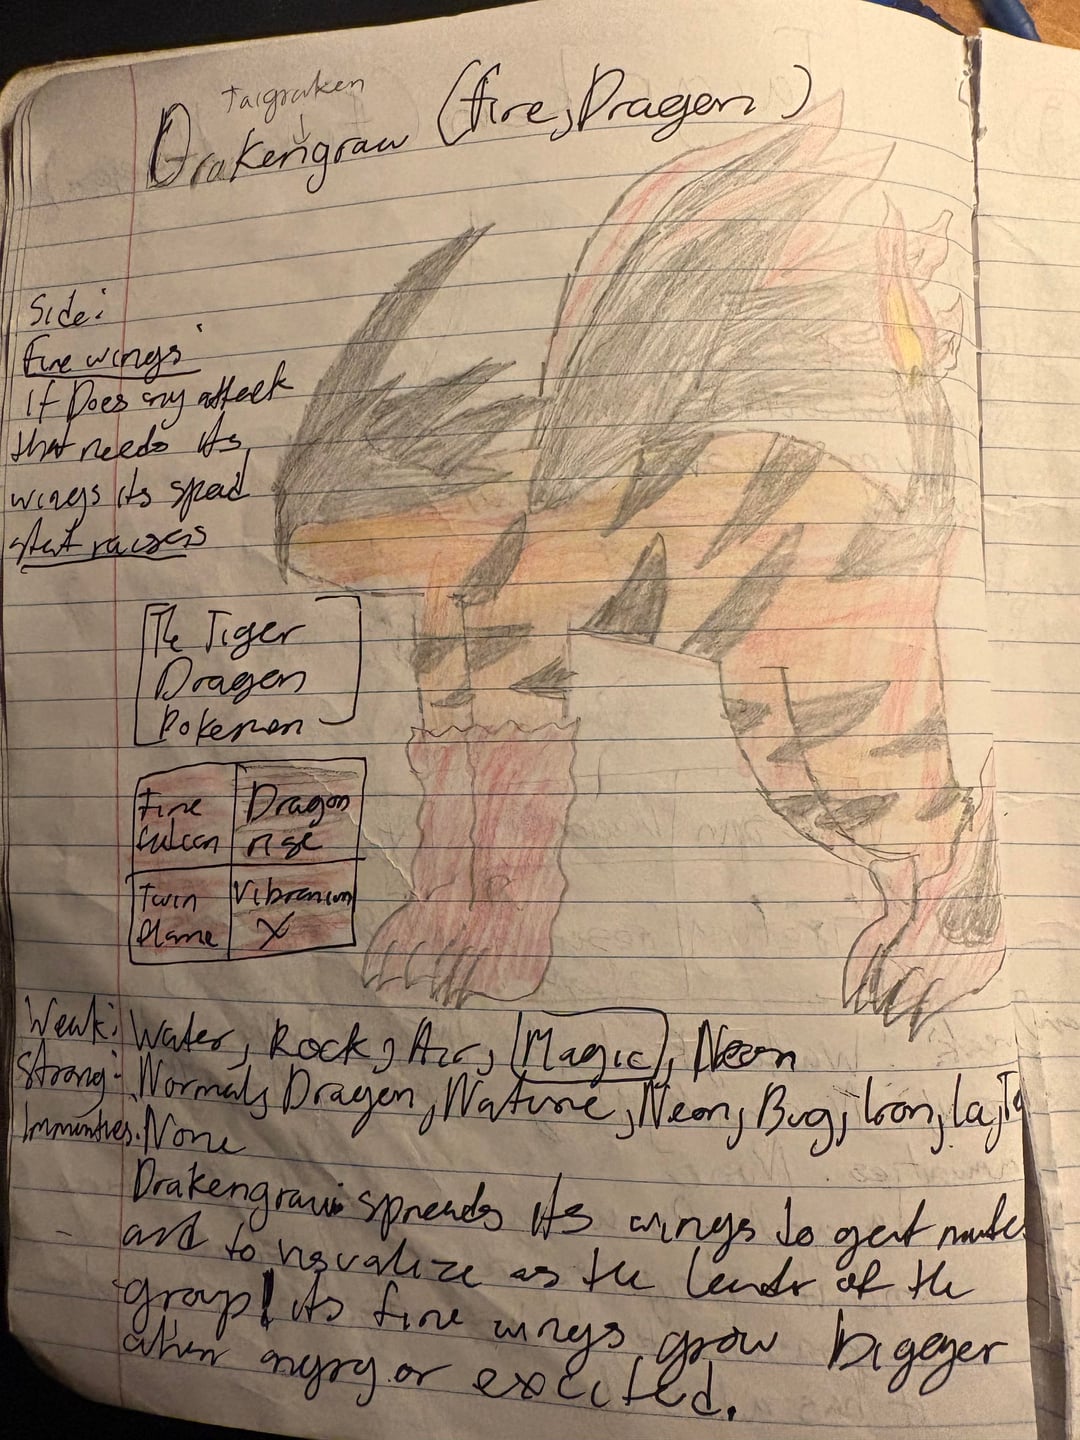 Taigraken
Drakengraw (fire, Dragon)
Side:
Fire wings
If Does any attack
that needs its
wings its spead
start raises
The Tiger
Dragon
Pokemon
Fire
falcon
Dragon
rise
Twin
flame
Vibranium
X
Weak: Water, Rock, Air, Magic, Neon
Strong: Normal, Dragon, Nature, Neon, Bug, Iron,
Immunties: None
Drakengraw spreads its wings to get
and to visualize as the leader of the
group! its fire wings grow bigger
when angry or excited.